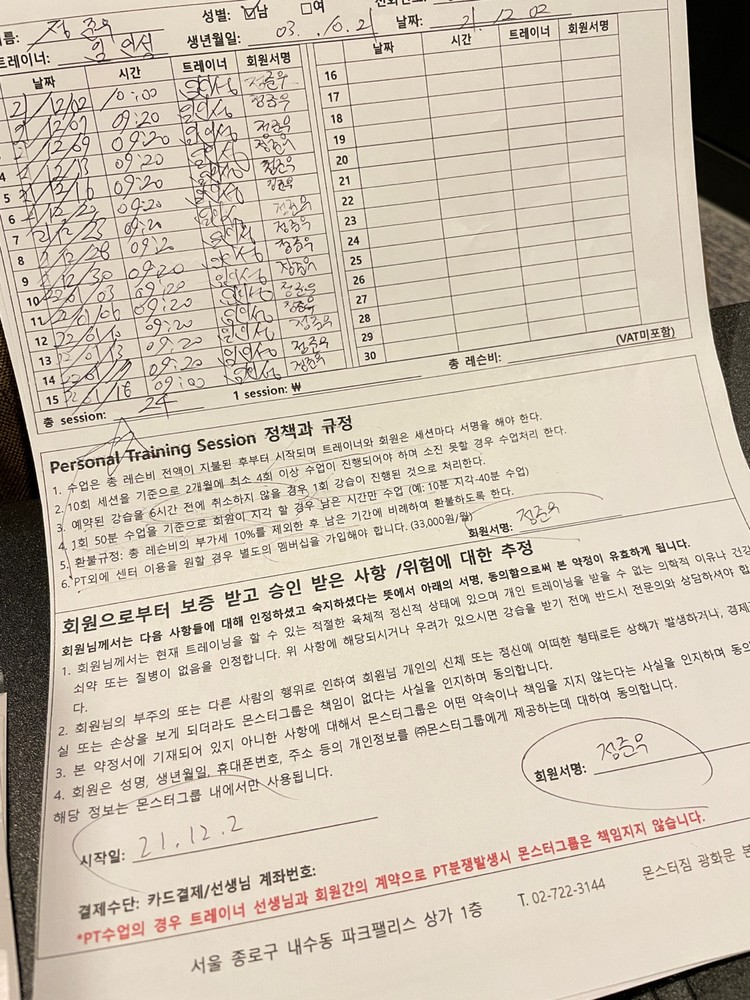 성별: ☑남 □여
름: 정준우 생년월일: 03. 10. 21 날짜: 21. 12. 02
트레이너: 임의성
날짜 시간 트레이너 회원서명 날짜 시간 트레이너 회원서명
21/12/02 10:00 임의성 정준우 16
12/07 09:20 임의성 정준우 17
12/09 09:20 임의성 정준우 18
4 12/13 09:20 임의성 정준우 19
5 12/16 09:20 임의성 정준우 20
6 12/20 09:20 임의성 정준우 21
7 12/23 09:20 임의성 정준우 22
8 12/28 09:20 임의성 정준우 23
9 12/30 09:20 임의성 정준우 24
10 22/01/03 09:20 임의성 정준우 25
11 22/01/06 09:20 임의성 정준우 26
12 22/01/10 09:20 임의성 정준우 27
13 22/01/13 09:20 임의성 정준우 28
14 09:20 임의성 정준우 29
15 22/01/18 09:00 임의성 정준우 30
총 session: 24 1 session: ₩ 총 레슨비: (VAT미포함)
Personal Training Session 정책과 규정
1. 수업은 총 레슨비 전액이 지불된 후부터 시작되며 트레이너와 회원은 세션마다 서명을 해야 한다.
2. 10회 세션을 기준으로 2개월에 최소 4회 이상 수업이 진행되어야 하며 소진 못할 경우 수업처리 한다.
3. 예약된 강습을 6시간 전에 취소하지 않을 경우 1회 강습이 진행된 것으로 처리한다.
4. 1회 50분 수업을 기준으로 회원이 지각 할 경우 남은 시간만 수업 (예: 10분 지각-40분 수업)
5. 환불규정: 총 레슨비의 부가세 10%를 제외한 후 남은 기간에 비례하여 환불하도록 한다.
6. PT외에 센터 이용을 원할 경우 별도의 멤버십을 가입해야 합니다. (33,000원/월)
회원서명: 정준우
회원으로부터 보증 받고 승인 받은 사항 /위험에 대한 추정
회원님께서는 다음 사항들에 대해 인정하셨고 숙지하셨다는 뜻에서 아래의 서명, 동의함으로써 본 약정이 유효하게 됩니다.
1. 회원님께서는 현재 트레이닝을 할 수 있는 적절한 육체적 정신적 상태에 있으며 개인 트레이닝을 받을 수 없는 의학적 이유나 건강
쇠약 또는 질병이 없음을 인정합니다. 위 사항에 해당되시거나 우려가 있으시면 강습을 받기 전에 반드시 전문의와 상담하셔야 합
다.
2. 회원님의 부주의 또는 다른 사람의 행위로 인하여 회원님 개인의 신체 또는 정신에 어떠한 형태로든 상해가 발생하거나, 경제
실 또는 손상을 보게 되더라도 몬스터그룹은 책임이 없다는 사실을 인지하며 동의합니다.
3. 본 약정서에 기재되어 있지 아니한 사항에 대해서 몬스터그룹은 어떤 약속이나 책임을 지지 않는다는 사실을 인지하며 동의
4. 회원은 성명, 생년월일, 휴대폰번호, 주소 등의 개인정보를 ㈜몬스터그룹에게 제공하는데 대하여 동의합니다.
해당 정보는 몬스터그룹 내에서만 사용됩니다.
회원서명: 정준우
시작일: 21. 12. 2
결제수단: 카드결제/선생님 계좌번호:
*PT수업의 경우 트레이너 선생님과 회원간의 계약으로 PT분쟁발생시 몬스터그룹은 책임지지 않습니다.
서울 종로구 내수동 파크팰리스 상가 1층 T. 02-722-3144 몬스터짐 광화문 본